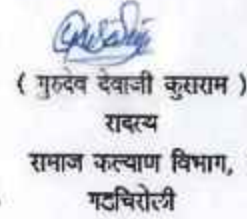 ( गुरुदेव देवाजी कुराराम )
रादस्य
रामाज कल्याण विभाग,
गडचिरोली